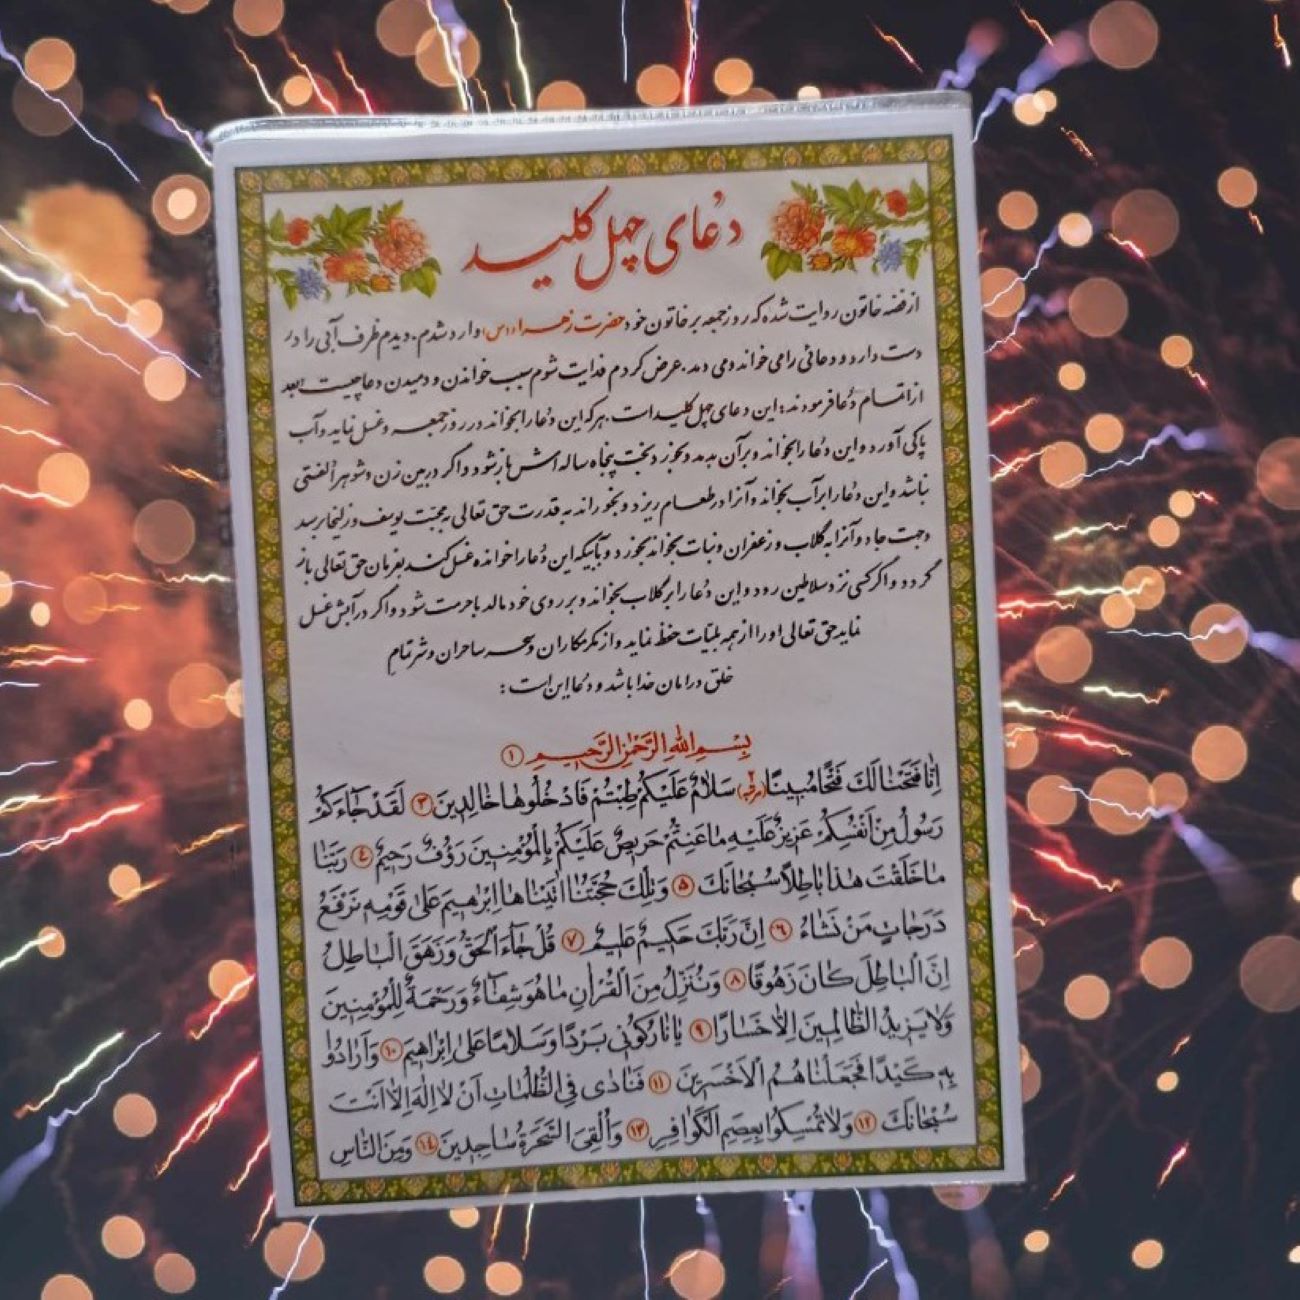 دعای چهل کلید
از فضه خاتون روایت شده که روز جمعه بر خاتون خود حضرت زهرا (س) وارد شدم. دیدم ظرف آبی را در
دست دارد و دعائی را می خواند و می دمد. عرض کردم فدایت شوم سبب خواندن و دمیدن دعا چیست بعد
از اتمام دُعا فرمودند: این دعای چهل کلید است. هر که این دُعا را بخواند در روز جمعه و غسل نماید و آب
پاکی آورد و این دُعا را بخواند و بر آن بدمد و بخورد بخت پنجاه ساله اش باز شود و اگر در بین زن و شوهر الفتی
نباشد و این دُعا را بر آب بخواند و آنرا در طعام ریزد و بخوراند به قدرت حق تعالی به محبت یوسف و زلیخا برسد
وجهت جادو آنرا به گلاب و زعفران و نبات بخواند بخورد و با آبیکه این دُعا را خوانده غسل کند بفرمان حق تعالی باز
گردد و اگر کسی نزد سلاطین رود و این دُعا را بر گلاب بخواند و بر روی خود مالد با حرمت شود و اگر در آبش غسل
نماید حق تعالی او را از همه بلیّات حفظ نماید و از مکر مکاران و سحر ساحران و شر تمام
خلق در امان خدا باشد و دُعا این است:
بِسْمِ اللهِ الرَّحْمٰنِ الرَّحیمِ ①
اِنّٰا فَتَحْنٰا لَكَ فَتْحًا مُبینًا سَلٰامٌ عَلَیْكُمْ طِبْتُمْ فَادْخُلُوهٰا خٰالِدینَ ③ لَقَدْ جٰاءَكُمْ
رَسُولٌ مِنْ اَنْفُسِكُمْ عَزیزٌ عَلَیْهِ مٰا عَنِتُّمْ حَریصٌ عَلَیْكُمْ بِالْمُؤْمِنینَ رَؤُفٌ رَحیمٌ ④ رَبَّنٰا
مٰا خَلَقْتَ هٰذٰا بٰاطِلًا سُبْحٰانَكَ ⑤ وَ تِلْكَ حُجَّتُنٰا اٰتَیْنٰاهٰا اِبْرٰهیمَ عَلىٰ قَوْمِهٖ نَرْفَعُ
دَرَجٰاتٍ مَنْ نَشٰاءُ ⑥ اِنَّ رَبَّكَ حَكیمٌ عَلیمٌ ⑦ قُلْ جٰاءَ الْحَقُّ وَ زَهَقَ الْبٰاطِلُ
اِنَّ الْبٰاطِلَ كٰانَ زَهُوقًا ⑧ وَ نُنَزِّلُ مِنَ الْقُرْاٰنِ مٰا هُوَ شِفٰاءٌ وَ رَحْمَةٌ لِلْمُؤْمِنینَ
وَ لٰا یَزیدُ الظّٰالِمینَ اِلّٰا خَسٰارًا ⑨ یٰا نٰارُ كُونی بَرْدًا وَ سَلٰامًا عَلىٰ اِبْرٰاهیمَ ⑩ وَ اَرٰادُوا
بِهٖ كَیْدًا فَجَعَلْنٰاهُمُ الْاَخْسَرینَ ⑪ فَنٰادىٰ فِی الظُّلُمٰاتِ اَنْ لٰا اِلٰهَ اِلّٰا اَنْتَ
سُبْحٰانَكَ ⑫ وَ لٰا تُمْسِكُوا بِعِصَمِ الْكَوٰافِرِ ⑬ وَ اُلْقِیَ السَّحَرَةُ سٰاجِدینَ ⑭ وَ مِنَ النّٰاسِ